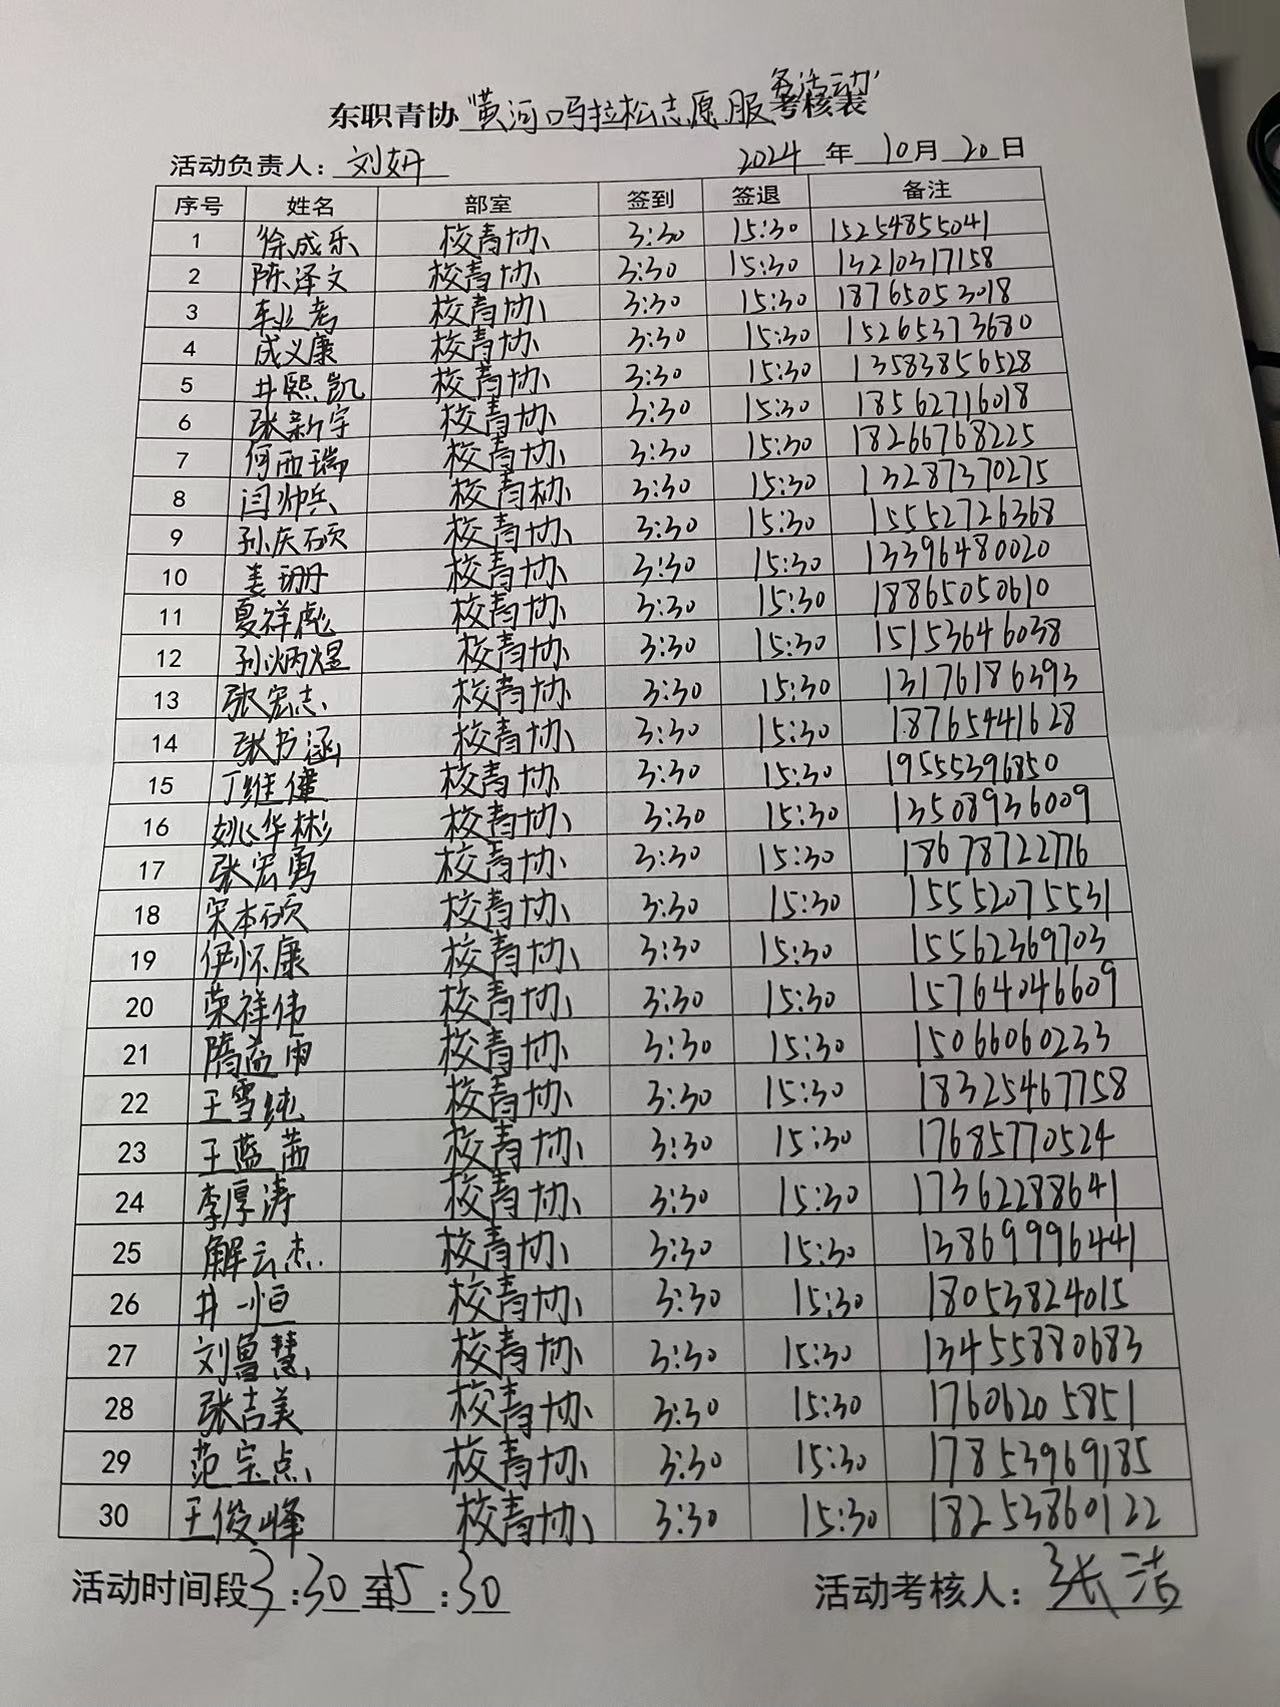 务活动
东职青协 黄河吗拉松志愿服 考核表
活动负责人: 刘妍 2024 年 10 月 20 日
序号 姓名 部室 签到 签退 备注
1 徐成乐 校青协 3:30 15:30 15254855041
2 陈泽文 校青协 3:30 15:30 13210317158
3 车业考 校青协 3:30 15:30 18765053018
4 成义康 校青协 3:30 15:30 15265373680
5 井熙凯 校青协 3:30 15:30 13583856528
6 张新宇 校青协 3:30 15:30 18562716018
7 何西瑞 校青协 3:30 15:30 18266768225
8 闫帅兵 校青协 3:30 15:30 13287370275
9 孙庆硕 校青协 3:30 15:30 15552726368
10 姜珊 校青协 3:30 15:30 13396480020
11 夏祥彪 校青协 3:30 15:30 18865050610
12 孙炳煜 校青协 3:30 15:30 15153646038
13 张宏志 校青协 3:30 15:30 13176186393
14 张书涵 校青协 3:30 15:30 18765441628
15 丁维健 校青协 3:30 15:30 19555396850
16 姚华彬 校青协 3:30 15:30 13508936009
17 张宏勇 校青协 3:30 15:30 18678722776
18 宋本硕 校青协 3:30 15:30 15552075531
19 伊怀康 校青协 3:30 15:30 15562369703
20 荣祥伟 校青协 3:30 15:30 15764046609
21 隋益雨 校青协 3:30 15:30 15066060233
22 王雪纯 校青协 3:30 15:30 18325467758
23 王蓝茜 校青协 3:30 15:30 17685770524
24 李厚涛 校青协 3:30 15:30 17362288641
25 解云杰 校青协 3:30 15:30 13869996441
26 井一恒 校青协 3:30 15:30 18053824015
27 刘鲁慧 校青协 3:30 15:30 13455880683
28 张吉美 校青协 3:30 15:30 17606205851
29 范宝点 校青协 3:30 15:30 17853969185
30 王俊峰 校青协 3:30 15:30 18253860122
活动时间段 3:30 至 15:30 活动考核人: 张洁